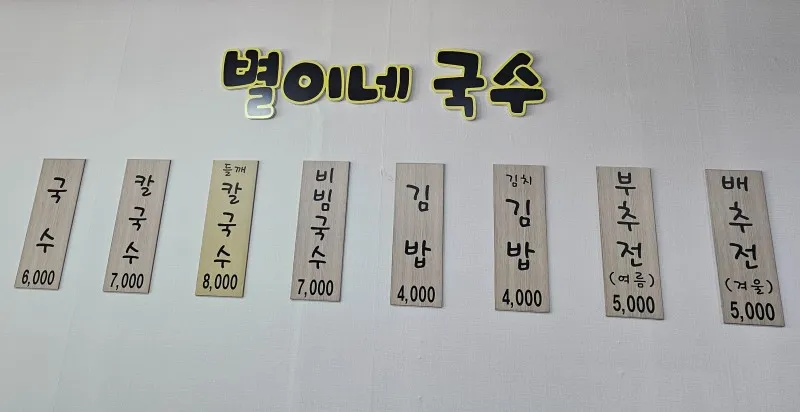 별이네 국수
국수
6,000
칼국수
7,000
들깨
칼국수
8,000
비빔국수
7,000
김밥
4,000
김치
김밥
4,000
부추전
(여름)
5,000
배추전
(겨울)
5,000